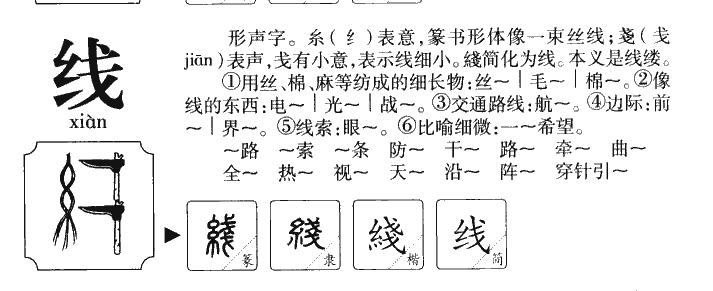 线
xiàn
形声字。糸(纟)表意,篆书形体像一束丝线;戔(戋
jiān)表声,戋有小意,表示线细小。綫简化为线。本义是线缕。
①用丝、棉、麻等纺成的细长物:丝～｜毛～｜棉～。②像
线的东西:电～｜光～｜战～。③交通路线:航～。④边际:前
～｜界～。⑤线索:眼～。⑥比喻细微:一～希望。
～路 ～索 ～条 防～ 干～ 路～ 牵～ 曲～
全～ 热～ 视～ 天～ 沿～ 阵～ 穿针引～
綫 篆
綫 隶
綫 楷
线 简